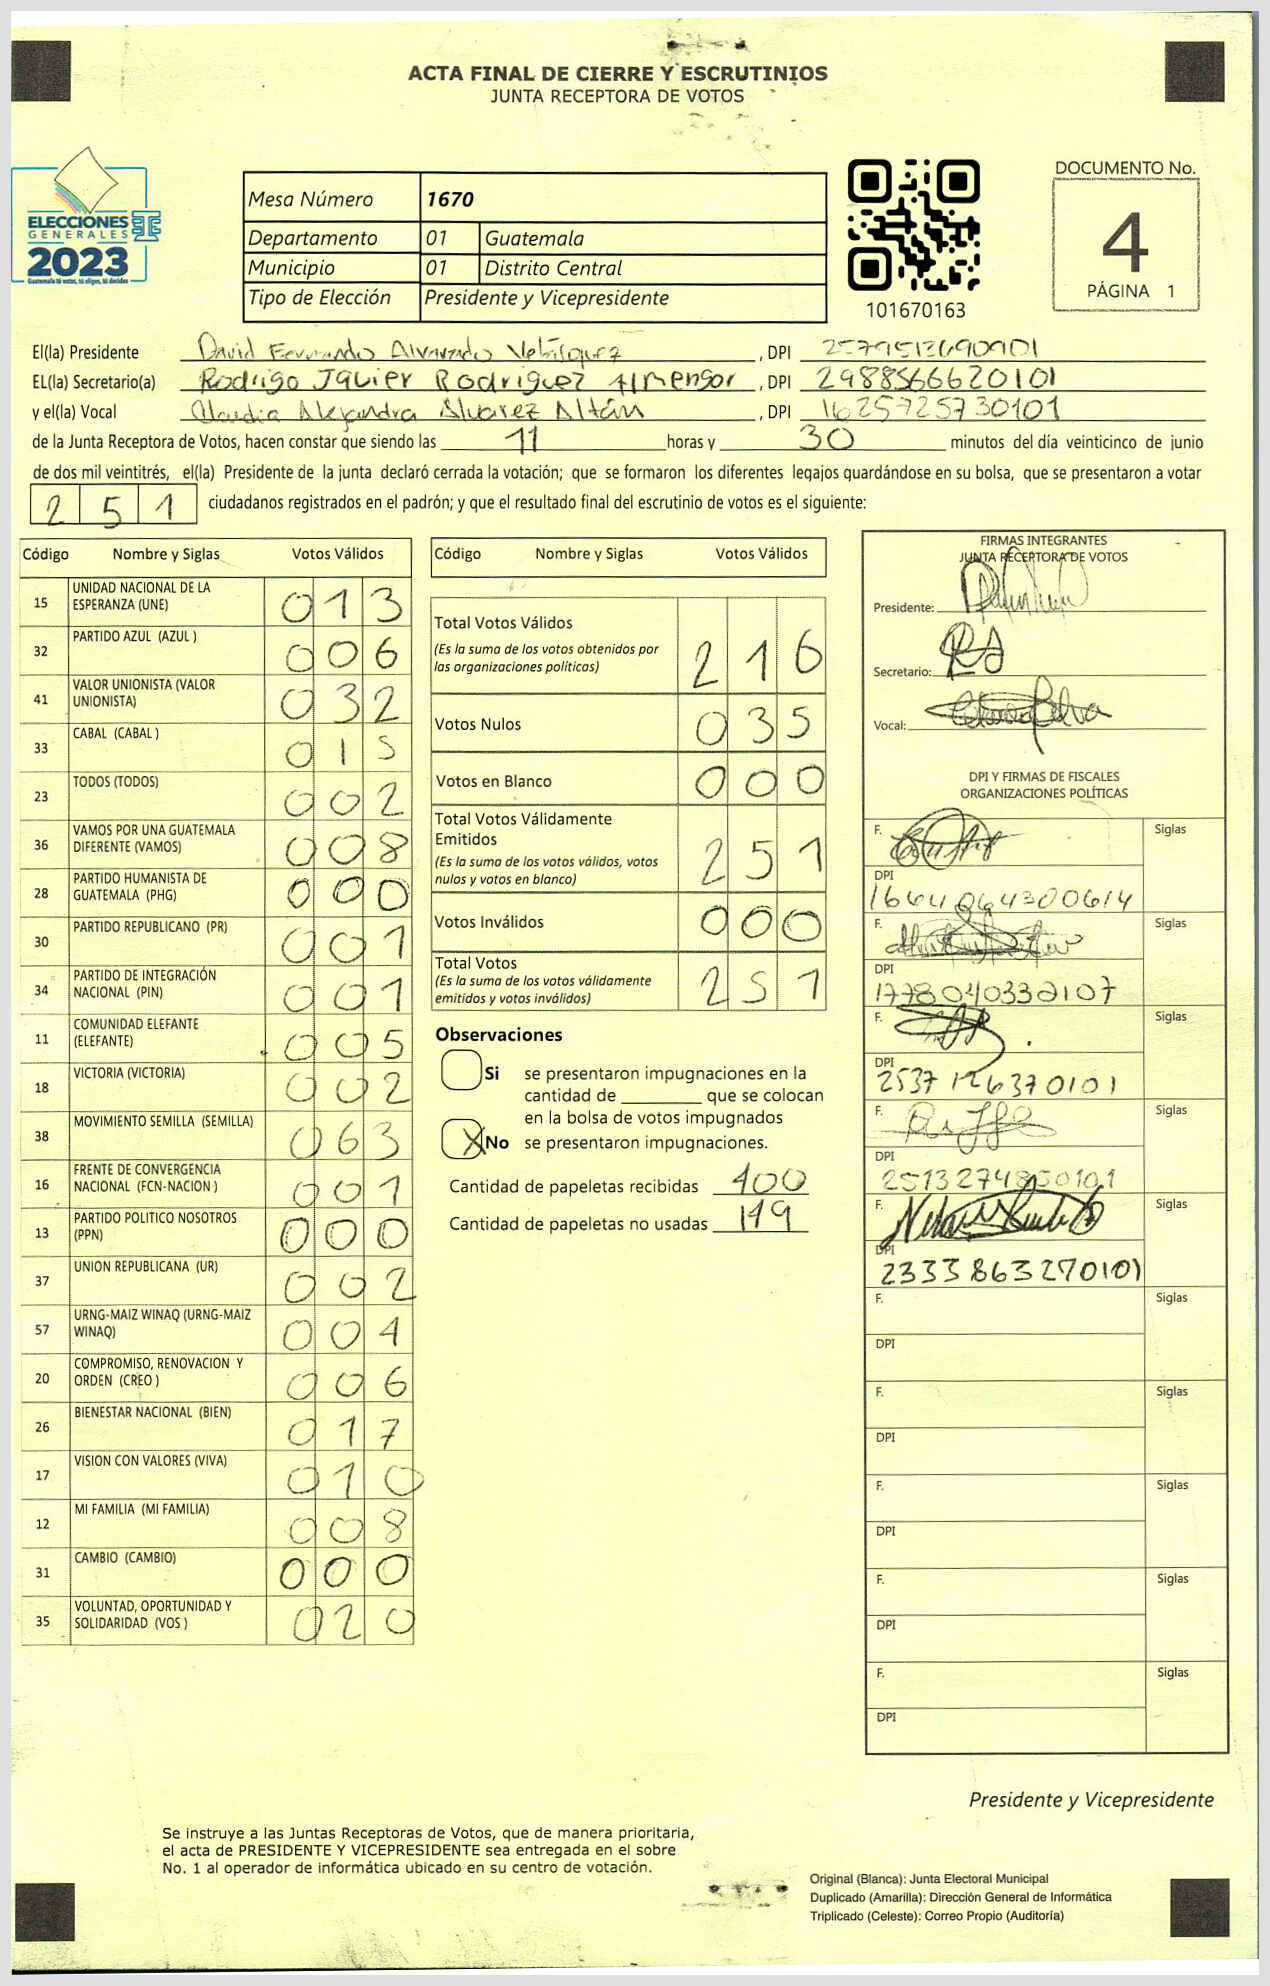 ACTA FINAL DE CIERRE Y ESCRUTINIOS
JUNTA RECEPTORA DE VOTOS
ELECCIONES
GENERALES
2023
Guatemala tú votas, tú eliges, tú decides
Mesa Número 1670
Departamento 01 Guatemala
Municipio 01 Distrito Central
Tipo de Elección Presidente y Vicepresidente
101670163
DOCUMENTO No.
4
PÁGINA 1
El(la) Presidente David Fernando Alvarado Velásquez, DPI
EL(la) Secretario(a) Rodrigo Javier Rodriguez Almengor, DPI 2988566620101
y el(la) Vocal Claudia Alejandra Alvarez Altán, DPI 1625725730101
de la Junta Receptora de Votos, hacen constar que siendo las 11 horas y 30 minutos del día veinticinco de junio
de dos mil veintitrés, el(la) Presidente de la junta declaró cerrada la votación; que se formaron los diferentes legajos guardándose en su bolsa, que se presentaron a votar
251 ciudadanos registrados en el padrón; y que el resultado final del escrutinio de votos es el siguiente:
Código Nombre y Siglas Votos Válidos
15 UNIDAD NACIONAL DE LA
ESPERANZA (UNE) 013
32 PARTIDO AZUL (AZUL ) 006
41 VALOR UNIONISTA (VALOR
UNIONISTA) 032
33 CABAL (CABAL ) 015
23 TODOS (TODOS) 002
36 VAMOS POR UNA GUATEMALA
DIFERENTE (VAMOS) 008
28 PARTIDO HUMANISTA DE
GUATEMALA (PHG) 000
30 PARTIDO REPUBLICANO (PR) 001
34 PARTIDO DE INTEGRACIÓN
NACIONAL (PIN) 001
11 COMUNIDAD ELEFANTE
(ELEFANTE) 005
18 VICTORIA (VICTORIA) 002
38 MOVIMIENTO SEMILLA (SEMILLA) 063
16 FRENTE DE CONVERGENCIA
NACIONAL (FCN-NACION ) 001
13 PARTIDO POLITICO NOSOTROS
(PPN) 000
37 UNION REPUBLICANA (UR) 002
57 URNG-MAIZ WINAQ (URNG-MAIZ
WINAQ) 004
20 COMPROMISO, RENOVACION Y
ORDEN (CREO ) 006
26 BIENESTAR NACIONAL (BIEN) 017
17 VISION CON VALORES (VIVA) 010
12 MI FAMILIA (MI FAMILIA) 008
31 CAMBIO (CAMBIO) 000
35 VOLUNTAD, OPORTUNIDAD Y
SOLIDARIDAD (VOS ) 020
Código Nombre y Siglas Votos Válidos
Total Votos Válidos
(Es la suma de los votos obtenidos por
las organizaciones politicas) 216
Votos Nulos 035
Votos en Blanco 000
Total Votos Válidamente
Emitidos
(Es la suma de los votos válidos, votos
nulos y votos en blanco) 251
Votos Inválidos 000
Total Votos
(Es la suma de los votos válidamente
emitidos y votos inválidos) 251
Observaciones
Si se presentaron impugnaciones en la
cantidad de ________ que se colocan
en la bolsa de votos impugnados
X No se presentaron impugnaciones.
Cantidad de papeletas recibidas 400
Cantidad de papeletas no usadas 149
FIRMAS INTEGRANTES
JUNTA RECEPTORA DE VOTOS
Presidente:
Secretario:
Vocal:
DPI Y FIRMAS DE FISCALES
ORGANIZACIONES POLÍTICAS
F. Siglas
DPI
F. Siglas
DPI
1778040332107
F. Siglas
DPI
2537126370101
F. Siglas
DPI
2513274850101
F. Siglas
DPI
2333863270101
F. Siglas
DPI
F. Siglas
DPI
F. Siglas
DPI
F. Siglas
DPI
F. Siglas
DPI
Presidente y Vicepresidente
Se instruye a las Juntas Receptoras de Votos, que de manera prioritaria,
el acta de PRESIDENTE Y VICEPRESIDENTE sea entregada en el sobre
No. 1 al operador de informática ubicado en su centro de votación.
Original (Blanca): Junta Electoral Municipal
Duplicado (Amarilla): Dirección General de Informática
Triplicado (Celeste): Correo Propio (Auditoría)